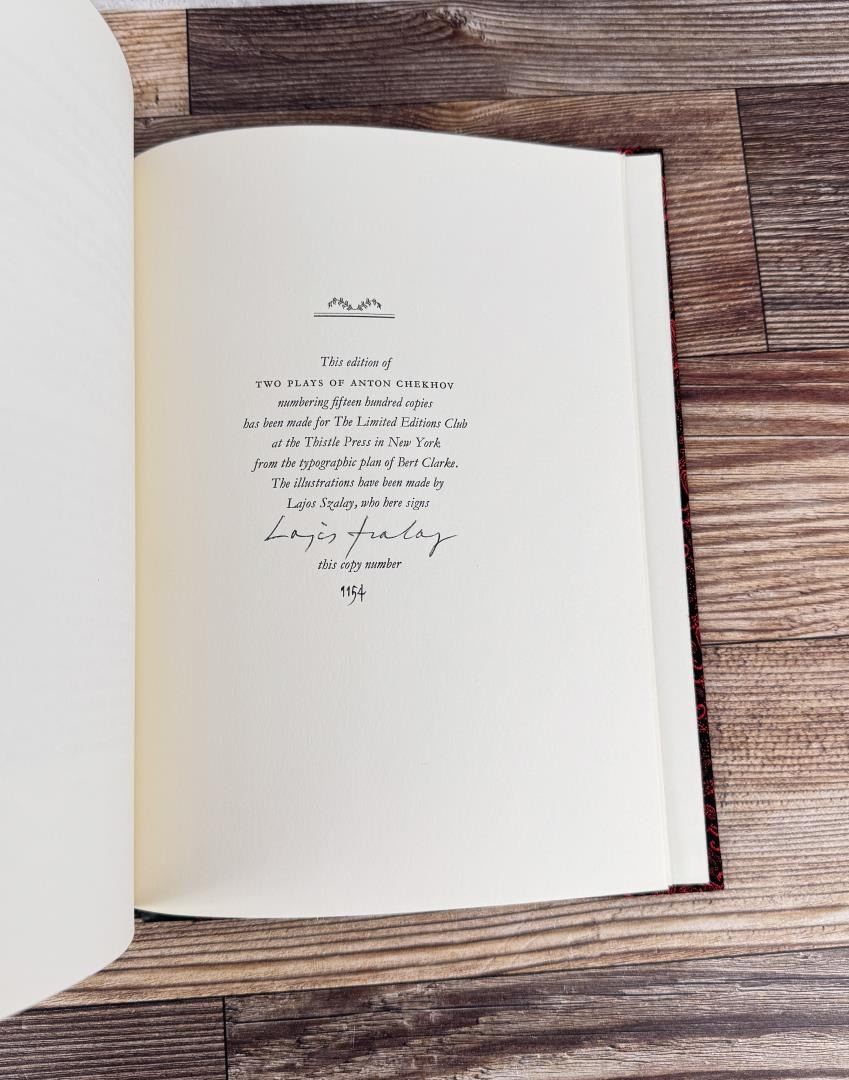 This edition of
TWO PLAYS OF ANTON CHEKHOV
numbering fifteen hundred copies
has been made for The Limited Editions Club
at the Thistle Press in New York
from the typographic plan of Bert Clarke.
The illustrations have been made by
Lajos Szalay, who here signs
Lajos Szalay
this copy number
1154